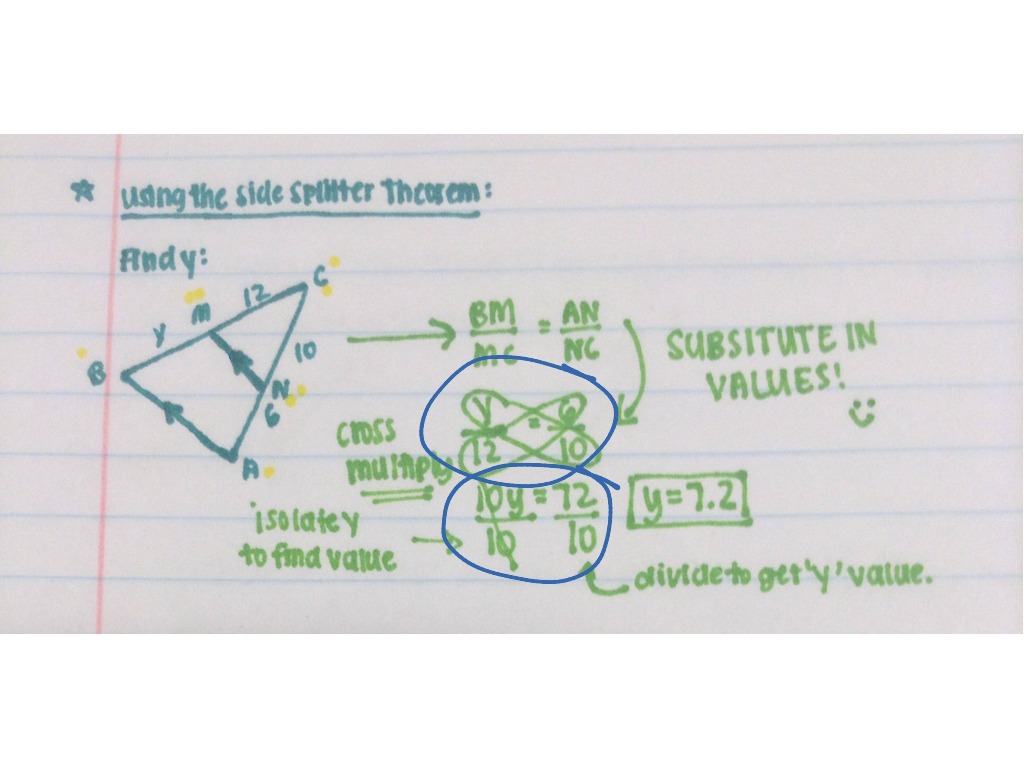 using the side splitter Theorem:
Find y:
C
12
M
y
BM = AN
MC NC
SUBSITUTE IN
VALUES!
10
B
N
6
y = 6
12 10
cross
multiply
A
10y = 72
10 10
y=7.2
isolate y
to find value
divide to get 'y' value.